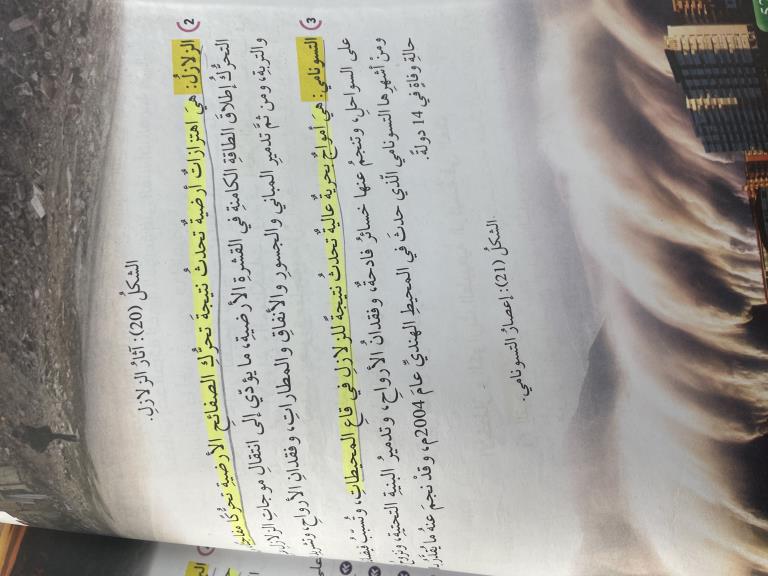 الشكلُ (20): آثارُ الزلازلِ.
2 الزلازلُ: هيَ اهتزازاتٌ أرضيةٌ تحدثُ نتيجةَ تحرُّكِ الصفائحِ الأرضيةِ تحرُّكًا
التحرُّكُ إطلاقَ الطاقةِ الكامنةِ في القشرةِ الأرضيةِ، ما يؤدّي إلى انتقالِ موجاتِ الزلازلِ
والتربةِ، ومن ثمَّ تدميرِ المباني والجسورِ والأنفاقِ والمطاراتِ، وفقدانِ الأرواحِ،
3 التسونامي: هيَ أمواجٌ بحريةٌ عاليةٌ تحدثُ نتيجةً للزلازلِ في قاعِ المحيطاتِ، وتُسبّبُ
على السواحلِ، وتنجمُ عنها خسائرُ فادحةٌ، وفقدانُ الأرواحِ، وتدميرُ البنيةِ التحتيةِ،
ومنْ أشهرِها التسونامي الّذي حدثَ في المحيطِ الهنديِّ عامَ 2004م، وقدْ نجمَ عنهُ ما
حالةِ وفاةٍ في 14 دولةً.
الشكلُ (21): إعصارُ التسونامي.